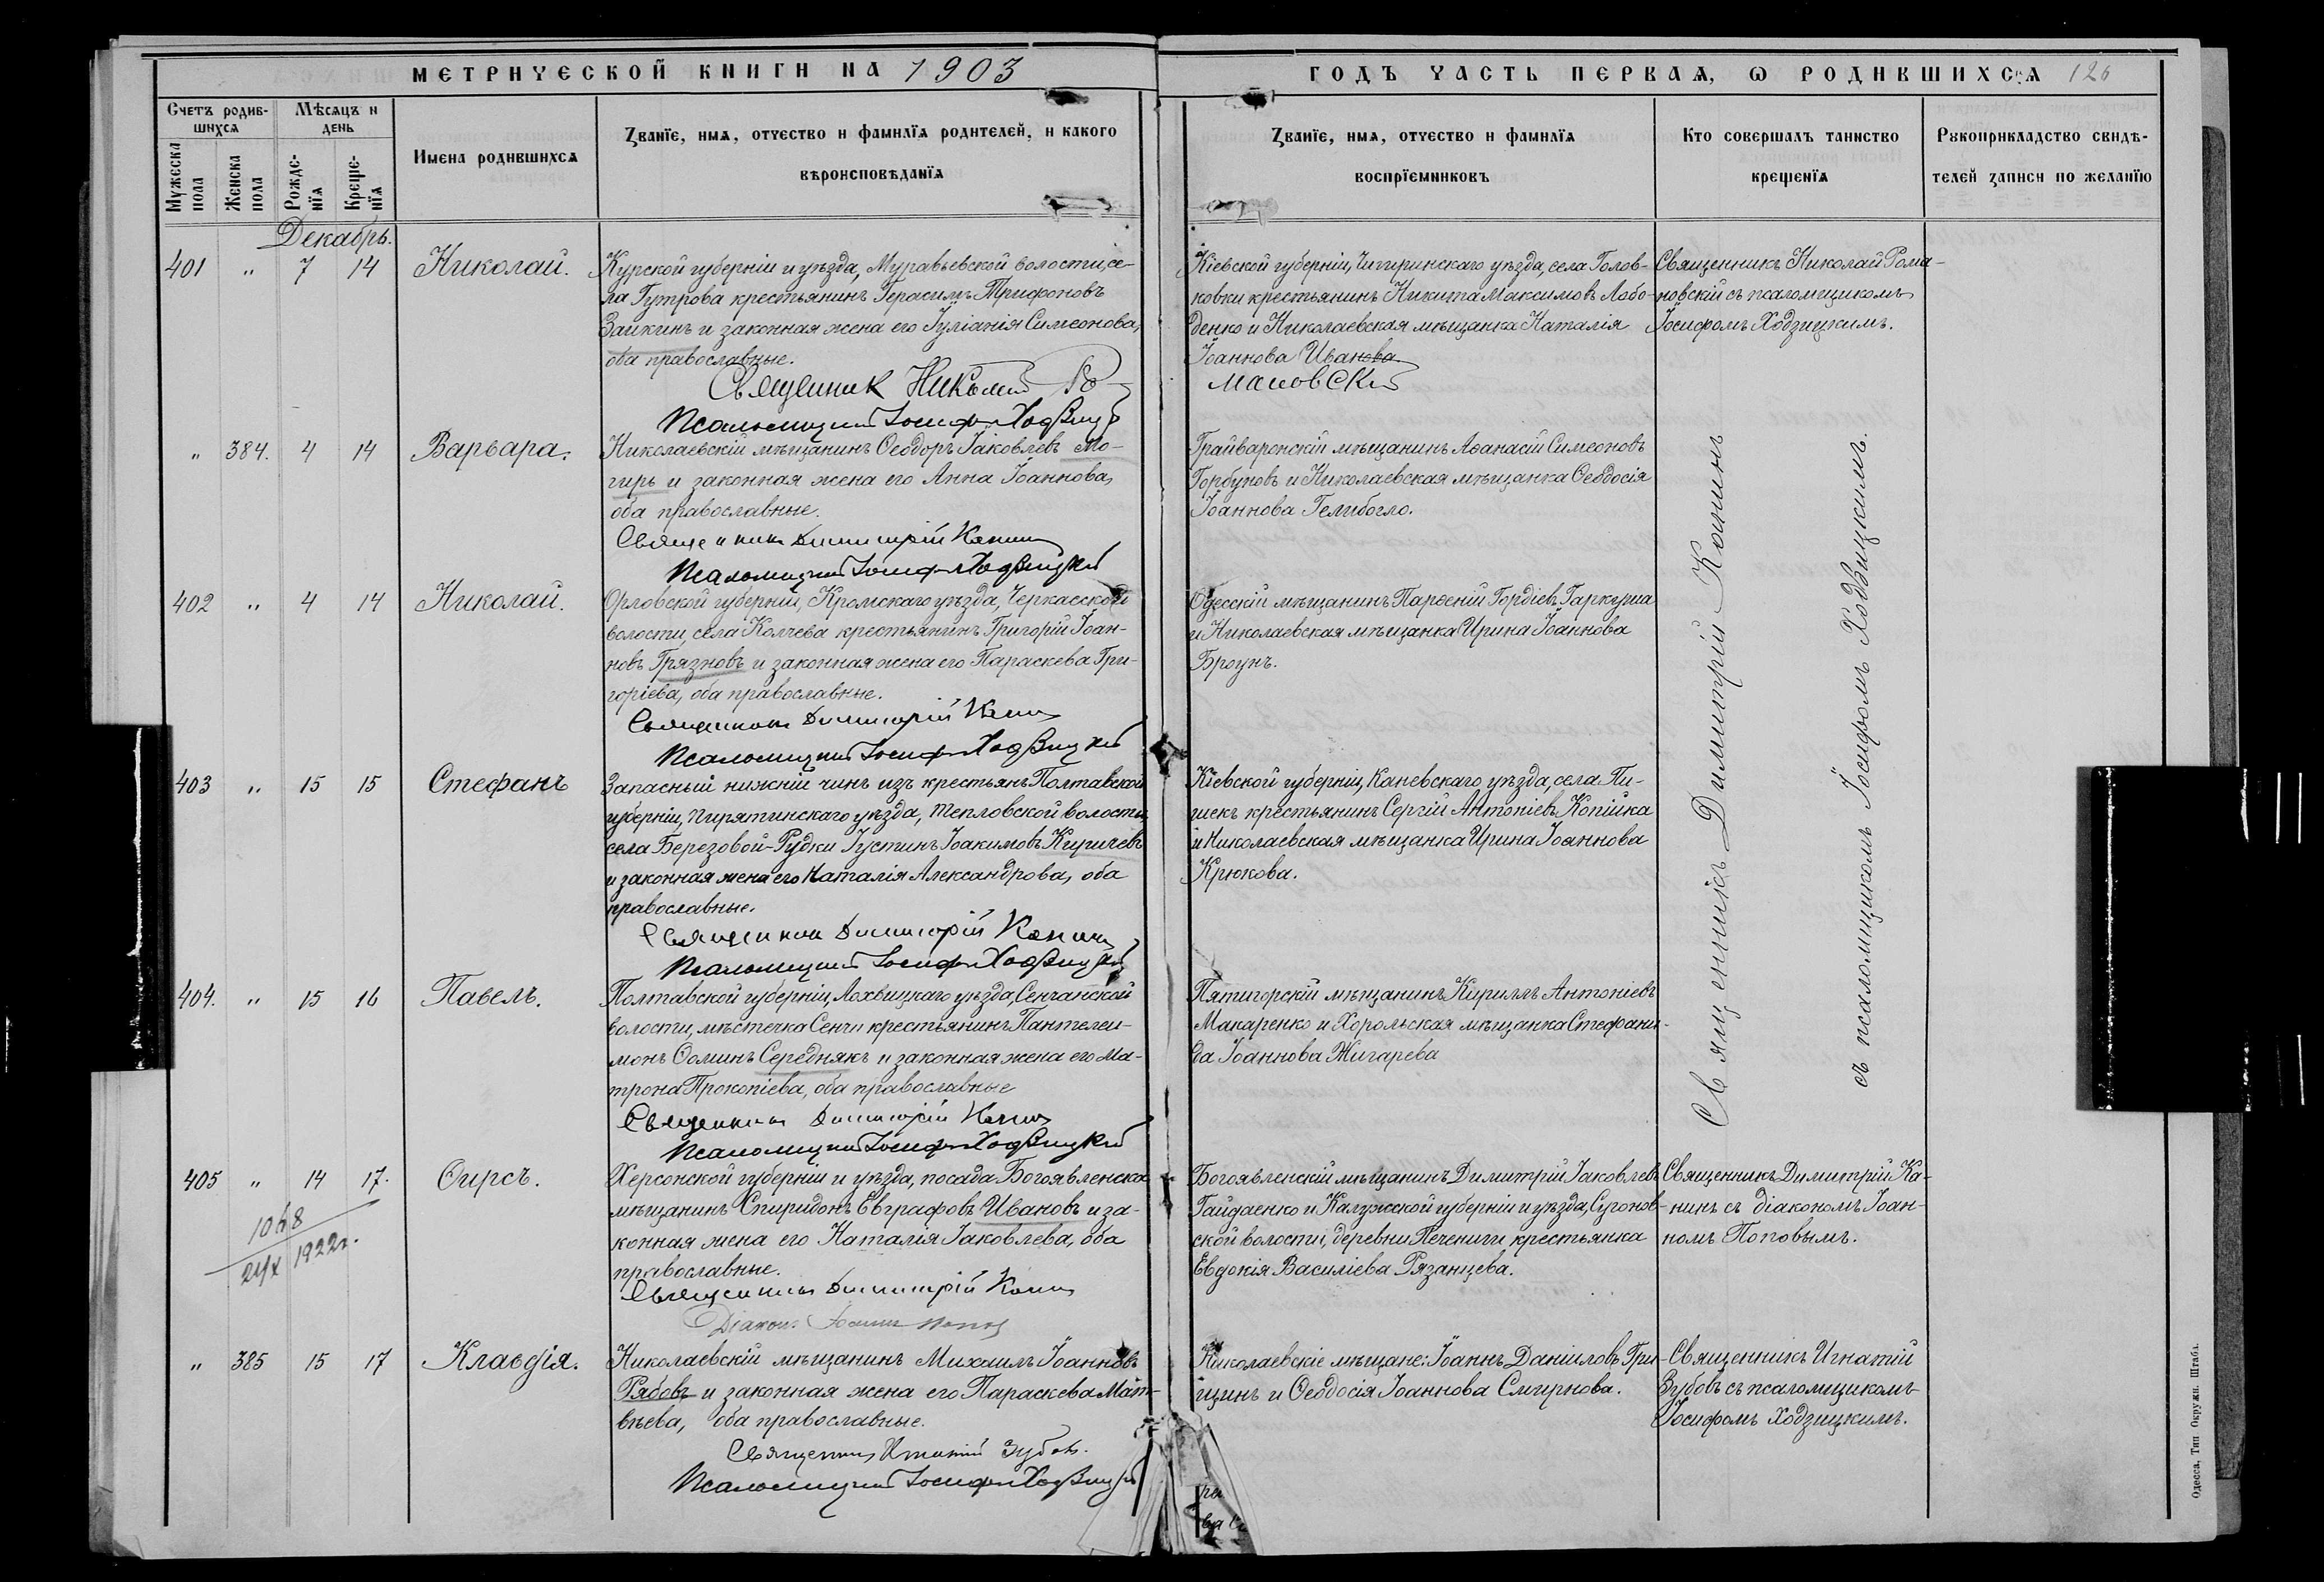 МЕТРИЧЕСКОЙ КНИГИ НА 1903
ГОДЪ ЧАСТЬ ПЕРВАЯ, Ѡ РОДИВШИХСѦ 126
Счетъ родив-
шихсѧ
Мѣсѧцъ и
день
Мужеска
пола
Женска
пола
Рожде-
нїѧ
Креще-
нїѧ
Имена родившихсѧ
Званїе, имѧ, отчество и фамилїѧ родителей, и какого
вѣроисповѣданїѧ
Званїе, имѧ, отчество и фамилїѧ
воспрїемниковъ
Кто совершалъ таинство
крещенїѧ
Рукоприкладство свидѣ-
телей записи по желанїю
Декабрь.
401 " 7 14 Николай.
Курской губерніи и уѣзда, Муравьевской волости, се-
ла Гутрова крестьянинъ Герасимъ Трифоновъ
Заикинъ и законная жена его Іуліанія Симеонова,
оба православные.
Священник Николай Ро-
мановскій
Псаломщикъ Іосифъ Ходзицкій
Кіевской губерніи, Чигиринскаго уѣзда, села Голов-
ковки крестьянинъ Никита Максимовъ Лобо-
денко и Николаевская мѣщанка Наталія
Іоаннова Иванова.
Священникъ Николай Рома-
новскій съ псаломщикомъ
Іосифомъ Ходзицкимъ.
" 384. 4 14 Варвара.
Николаевскій мѣщанинъ Ѳеодоръ Іаковлевъ Мо-
гирь и законная жена его Анна Іоаннова,
оба православные.
Священникъ Димитрій Канинъ
Псаломщикъ Іосифъ Ходзицкій
Грайворонскій мѣщанинъ Аѳанасій Симеоновъ
Горбуновъ и Николаевская мѣщанка Ѳеодосія
Іоаннова Гелибогло.
Священникъ Димитрій Канинъ
съ псаломщикомъ Іосифомъ Ходзицкимъ.
402 " 4 14 Николай.
Орловской губерніи, Кромскаго уѣзда, Черкасской
волости, села Колчева крестьянинъ Григорій Іоан-
новъ Грязновъ и законная жена его Параскева Гри-
горіева, оба православные.
Священникъ Димитрій Канинъ
Псаломщикъ Іосифъ Ходзицкій
Одесскій мѣщанинъ Парѳеній Гордіевъ Гаркуша
и Николаевская мѣщанка Ирина Іоаннова
Броунъ.
403 " 15 15 Стефанъ
Запасный нижній чинъ изъ крестьянъ Полтавской
губерніи, Пирятинскаго уѣзда, Тепловской волости,
села Березовой-Рудки Іустинъ Іоакимовъ Киричевъ
и законная жена его Наталія Александрова, оба
православные.
Священникъ Димитрій Канинъ
Псаломщикъ Іосифъ Ходзицкій
Кіевской губерніи, Каневскаго уѣзда, села Пи-
шекъ крестьянинъ Сергій Антоніевъ Копійка
и Николаевская мѣщанка Ирина Іоаннова
Крюкова.
404. " 15 16 Павелъ.
Полтавской губерніи, Лохвицкаго уѣзда, Сенчанской
волости, мѣстечка Сенчи крестьянинъ Пантелеи-
монъ Ѳоминъ Середнякъ и законная жена его Ма-
трона Прокопіева, оба православные
Священникъ Димитрій Канинъ
Псаломщикъ Іосифъ Ходзицкій
Пятигорскій мѣщанинъ Кириллъ Антоніевъ
Макаренко и Хорольская мѣщанка Стефани-
да Іоаннова Жигарева
405 " 14 17. Ѳирсъ.
1048
24/X 1922г.
Херсонской губерніи и уѣзда, посада Богоявленска
мѣщанинъ Спиридонъ Евграфовъ Ивановъ и за-
конная жена его Наталія Іаковлева, оба
православные.
Священникъ Димитрій Канинъ
Діаконъ Іоаннъ Поповъ
Богоявленскій мѣщанинъ Димитрій Іаковлевъ
Гайдаенко и Калужской губерніи и уѣзда, Сугонов-
ской волости, деревни Печениги крестьянка
Евдокія Василіева Рязанцева.
Священникъ Димитрій Ка-
нинъ съ діакономъ Іоан-
номъ Поповымъ.
" 385 15 17 Клавдія.
Николаевскій мѣщанинъ Михаилъ Іоанновъ
Рябовъ и законная жена его Параскева Мат-
вѣева, оба православные.
Священникъ Игнатій Зубовъ.
Псаломщикъ Іосифъ Ходзицкій
Николаевскіе мѣщане: Іоаннъ Даніиловъ Гри-
щинъ и Ѳеодосія Іоаннова Смирнова.
Священникъ Игнатій
Зубовъ съ псаломщикомъ
Іосифомъ Ходзицкимъ.
Одесса, Тип. Окружн. Штаба.